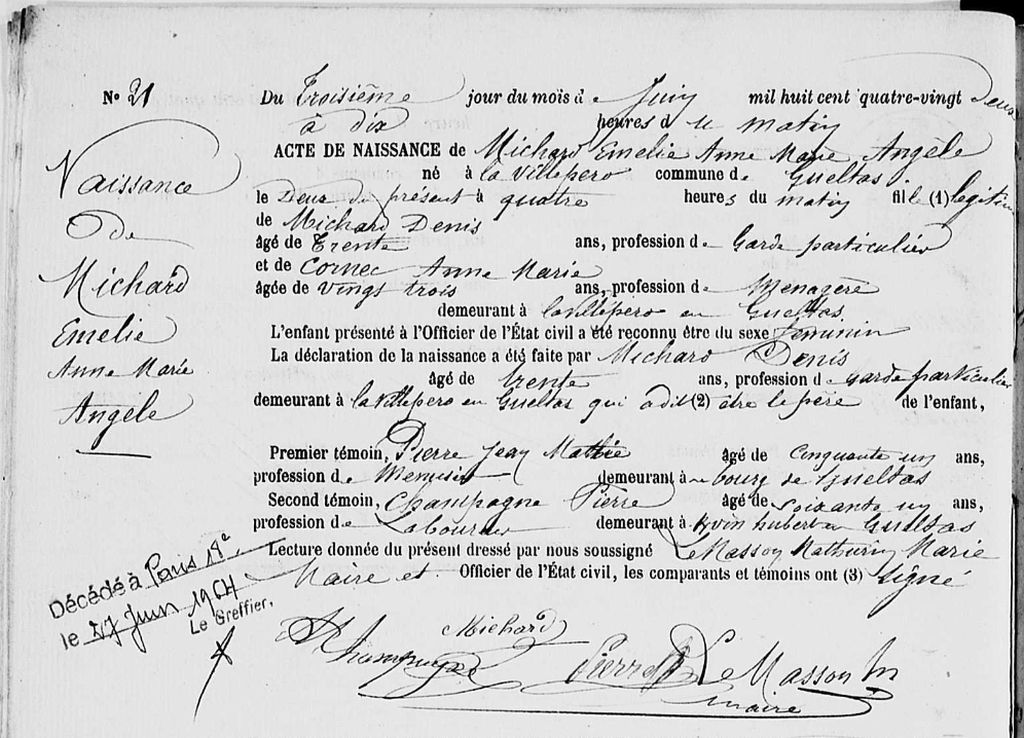 N° 21
Naissance
De
Michard
Emelie
Anne Marie
Angèle
Du Troisième jour du mois de Juin mil huit cent quatre-vingt Deux
à dix heures du matin
ACTE DE NAISSANCE de Michard Emelie Anne Marie Angèle
né à la villepero commune de Gueltas.
le Deux du présent à quatre heures du matin fille (1) legitime
de Michard Denis
âgé de Trente ans, profession de Garde particulier
et de Cornec Anne Marie
âgée de vingt trois ans, profession de Menagere
demeurant à la villepero en Gueltas
L'enfant présenté à l'Officier de l'État civil a été reconnu être du sexe feminin
La déclaration de la naissance a été faite par Michard Denis
âgé de trente ans, profession de Garde particulier
demeurant à la villepero en Gueltas qui a dit (2) être le père de l'enfant,
Premier témoin, Pierre Jean Mathie âgé de Cinquante un ans,
profession de Menusier demeurant à au bourg de Gueltas
Second témoin, Champagne Pierre âgé de soixante un ans,
profession de Laboureur demeurant à en Gueltas
Lecture donnée du présent dressé par nous soussigné Le Masson Mathurin Marie
Maire et Officier de l'État civil, les comparants et témoins ont (3) signé
Décédé à Paris 18e
le 27 Juin 1964
Le Greffier,
Michard
Champagne Pierre Le Masson
maire